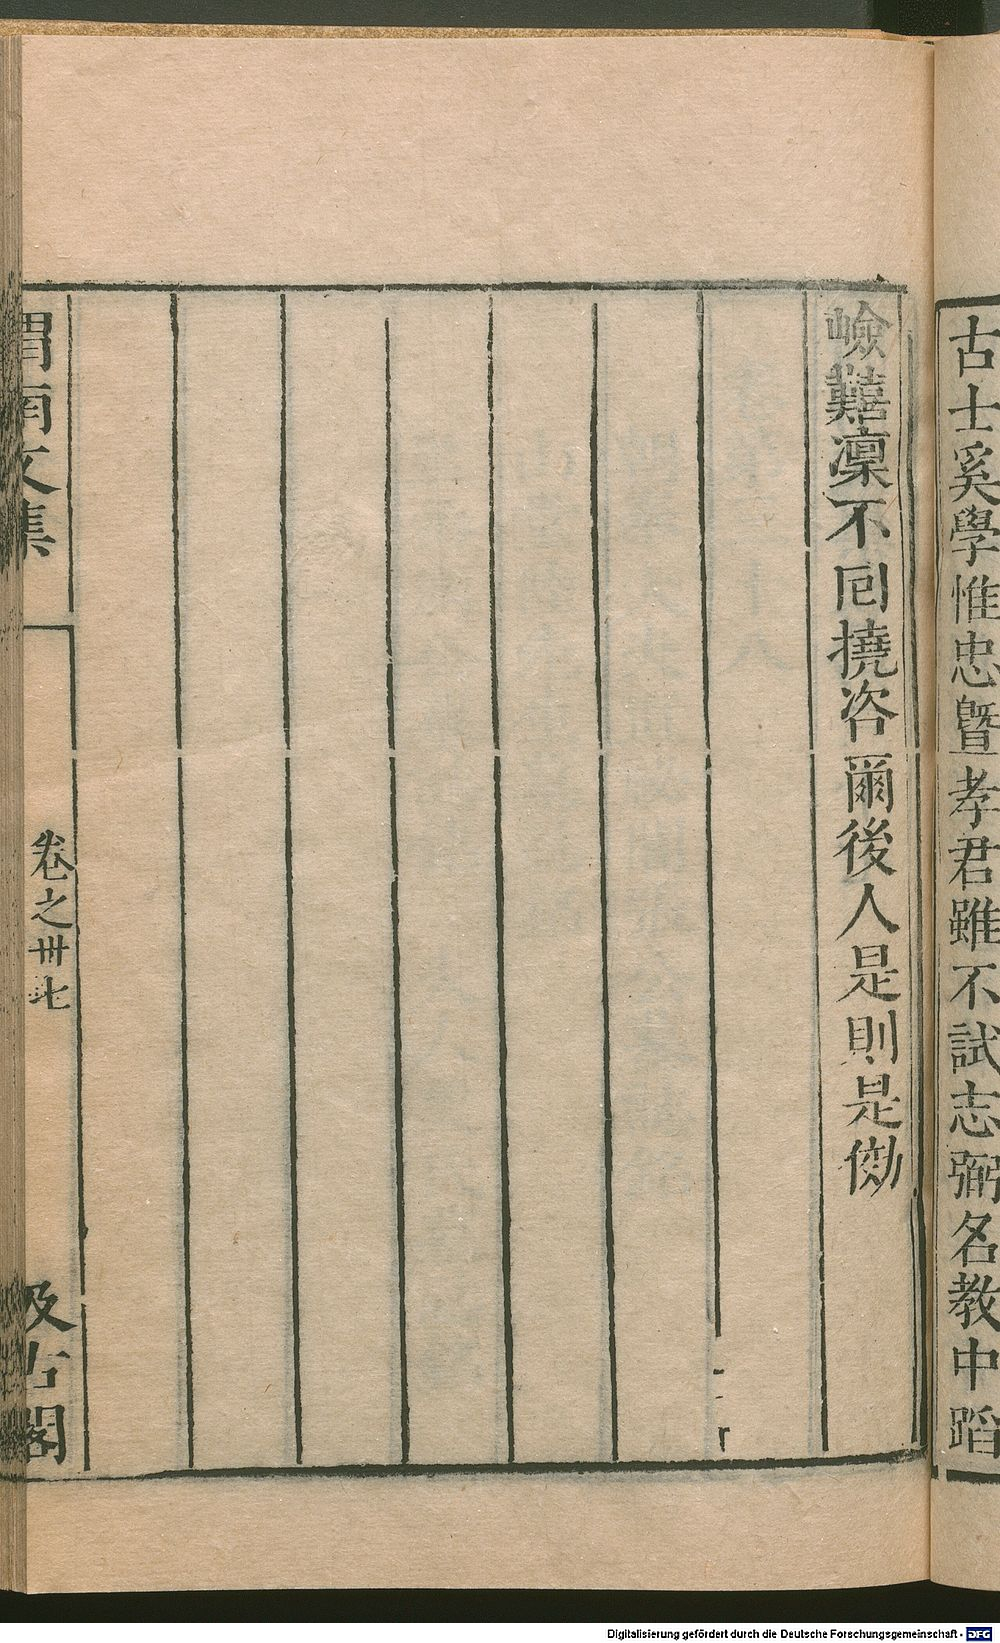 古士奚學惟忠曁孝君雖不試志弼名教中蹈
嶮難凜不囘撓咨爾後人是則是傚
渭南文集
卷之卅七
汲古閣
Digitalisierung gefördert durch die Deutsche Forschungsgemeinschaft - DFG